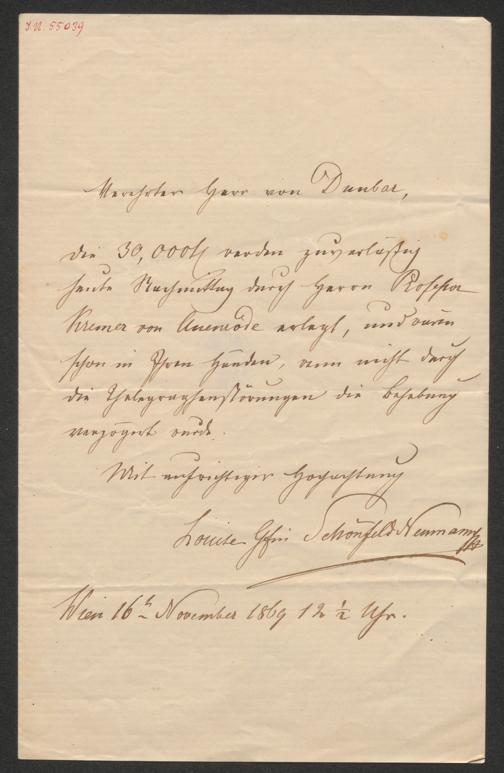 I.N. 55039
Verehrter Herr von Dunbar,
die 30,000 fl werden zuverläßig
heute Nachmittag durch Herrn Professor
Kremer von Auenrode erlegt, und wären
schon in Ihren Händen, wenn nicht durch
die Thelegraphenstörungen die Behebung
verzögert wurde.
Mit aufrichtiger Hochachtung
Louise Gfin Schönfeld Neumann
Wien 16t November 1869 12 ½ Uhr.